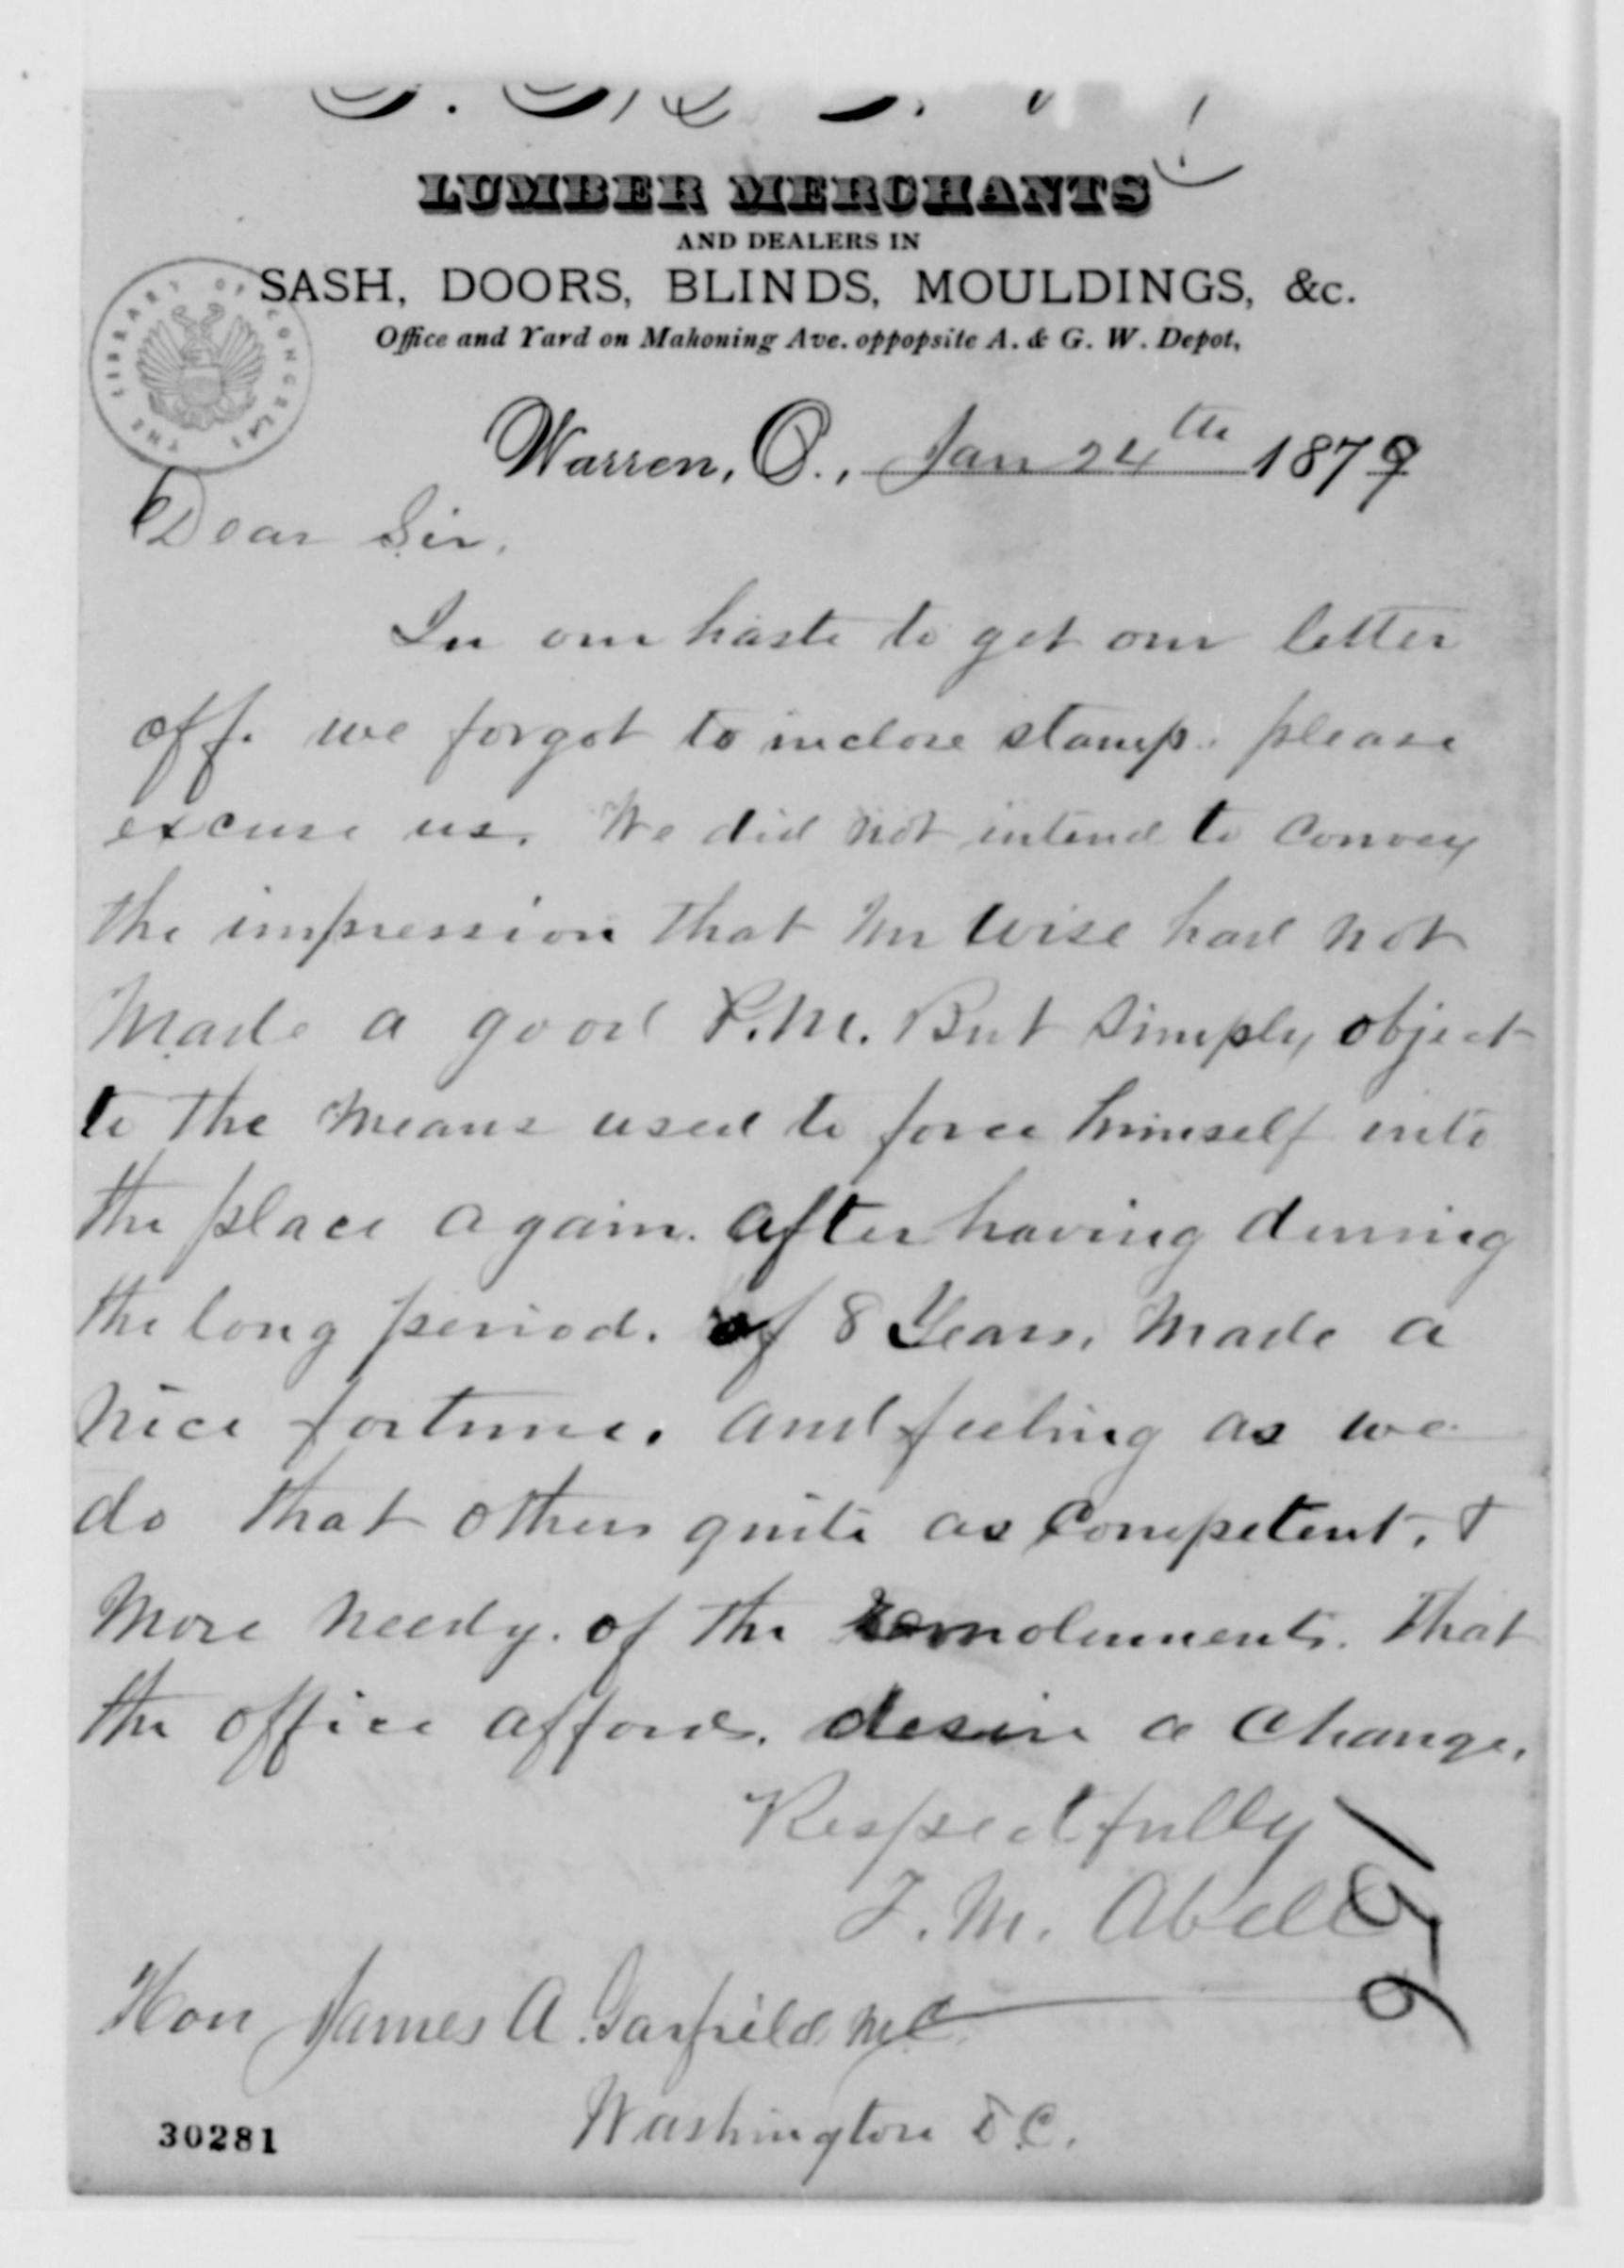 LUMBER MERCHANTS
AND DEALERS IN
SASH, DOORS, BLINDS, MOULDINGS, &c.
Office and Yard on Mahoning Ave. oppopsite A. & G. W. Depot,
THE LIBRARY OF CONGRESS
Warren, O., Jan 24th 1879
Dear Sir,
In our haste to get our letter
off. we forgot to inclose stamp. please
excuse us. We did not intend to convey
the impression that Mr Wise had not
made a good P.M. But simply object
to the means used to force himself into
the place again. after having during
the long period. of 8 Years, made a
nice fortune. and feeling as we
do that others quite as competent, &
more needy. of the emoluments. that
the office affords. desire a change.
Respectfully
F. M. Abell
Hon James A. Garfield M.C
Washington D.C.
30281